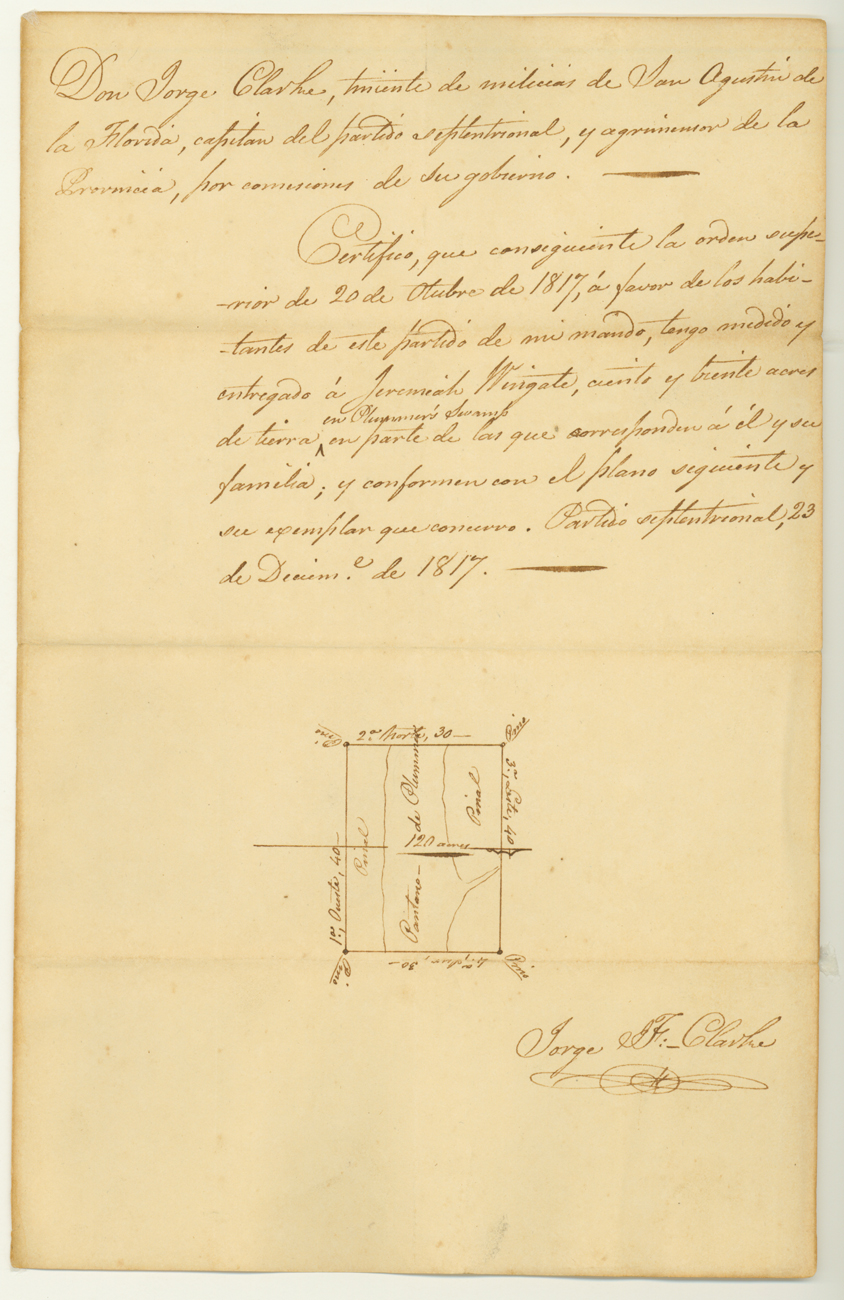 Don Jorge Clarke, teniente de milicias de San Agustin de
la Florida, capitan del partido septentrional, y agrimensor de la
Provincia, por comisiones de su gobierno.
Certifico, que consiguiente la orden supe-
-rior de 20 de Otubre de 1817, á favor de los habi-
-tantes de este partido de mi mando, tengo medido y
entregado á Jeremiah Wingate, ciento y treinte acres
en Plummer's Swamp
de tierra, en parte de las que corresponden á él y su
familia; y conformen con el plano siguiente y
su exemplar que concurro. Partido septentrional, 23
de Deciem.e de 1817.
Pino
2.a Norte, 30
Pino
1.a, Oueste, 40
Pinal
Pantano de Plummer
120 acres
Pinal
3.a, Este, 40
Pino
4.a, Sur, 30
Pino
Jorge J. F. Clarke